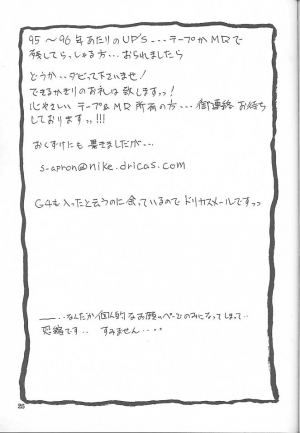 95〜96年あたりのUP'S---テープかMRで
残してらっしゃる方...おられましたら
どうか..ダビって下さいませ!
できるかぎりのお礼は致しますっ!
心やさしいテープ&MR所有の方...御連絡お待ち
しておりますっ!!!
おくずけにも書きましたが...
s-apron@nike.dricas.com
G4も入ったと云うのに余っているのでドリカスメールですっ
―..なんだか個人的なお願いのページのみになってしまって..
恐縮です.. すみません....
25